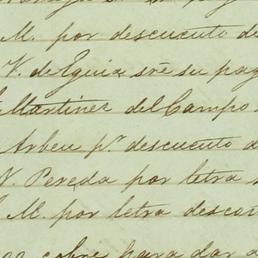 M. por descuento de
V. de Eguia sre su pag
Martinez del Campo
Arbeu pr descuento d
N Pereda por letra
M. por letra desco
cobre para dar a